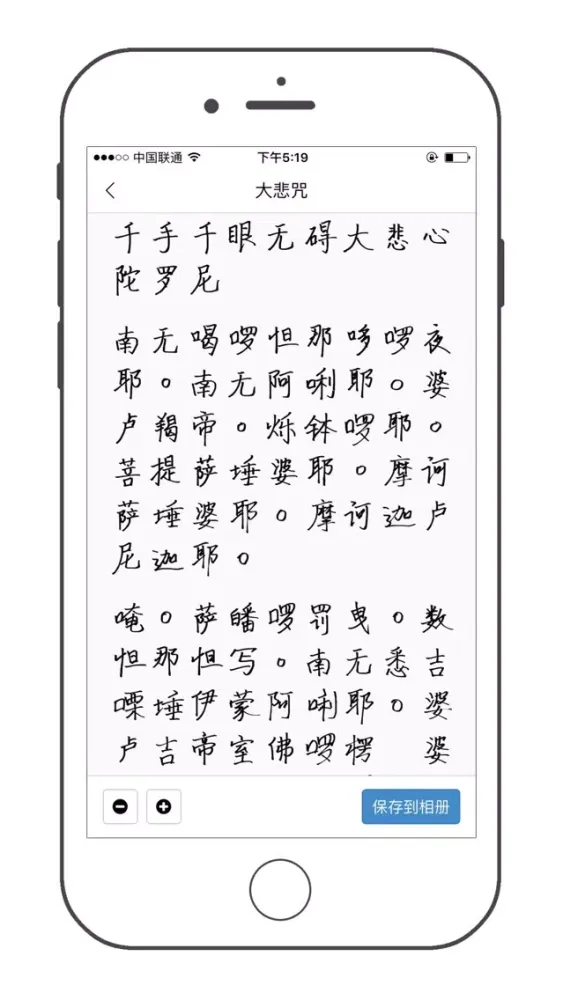 中国联通 下午5:19
大悲咒
千手千眼无碍大悲心
陀罗尼
南无喝啰怛那哆啰夜
耶。南无阿唎耶。婆
卢羯帝。烁钵啰耶。
菩提萨埵婆耶。摩诃
萨埵婆耶。摩诃迦卢
尼迦耶。
唵。萨皤啰罚曳。数
怛那怛写。南无悉吉
慄埵伊蒙阿唎耶。婆
卢吉帝室佛啰楞 婆
保存到相册